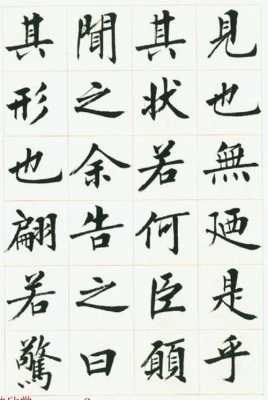 見也無廼是乎
其状若何臣願
聞之余告之曰
其形也翩若驚